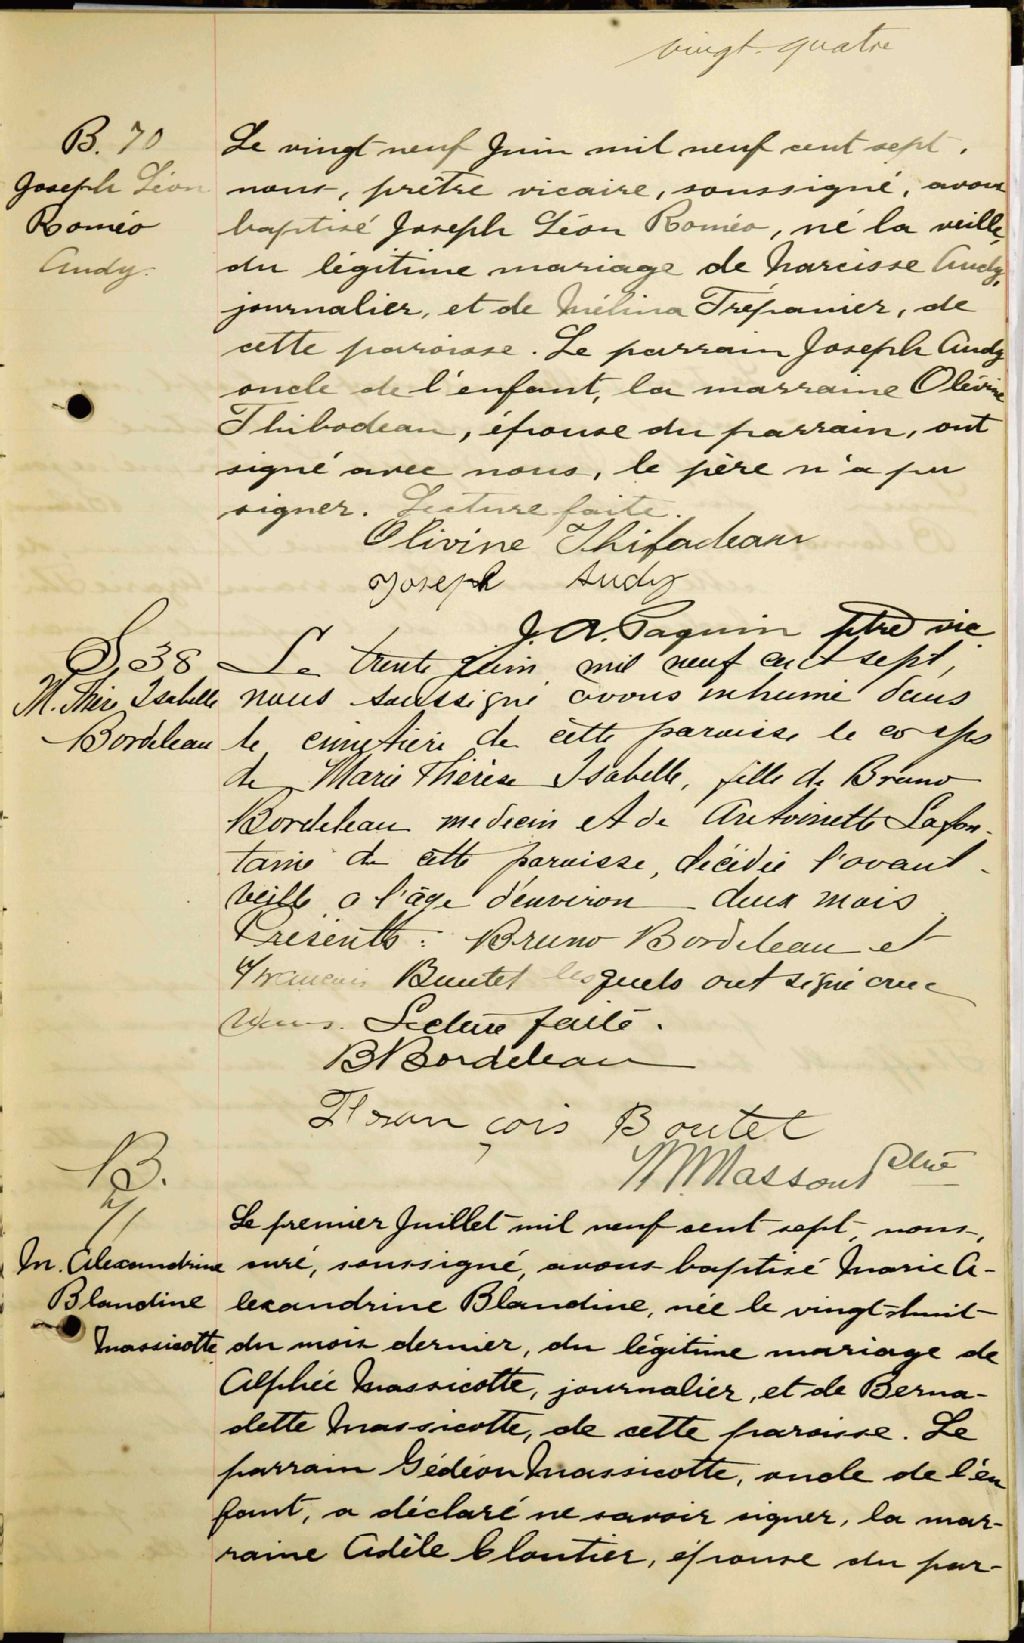 vingt-quatre
B. 70
Joseph Léon
Roméo
Audy.
Le vingt neuf Juin mil neuf cent sept,
nous, prêtre vicaire, soussigné, avons
baptisé Joseph Léon Roméo, né la veille,
du légitime mariage de Narcisse Audy,
journalier, et de Mélina Trépanier, de
cette paroisse. Le parrain Joseph Audy
oncle de l'enfant, la marraine Olivine
Thibodeau, épouse du parrain, ont
signé avec nous, le père n'a pu
signer. Lecture faite.
Olivine Thibadeau
Joseph Audy
J. A. Paquin ptre vic
S. 38
M. Thérè Isabelle
Bordeleau
Le trente Juin mil neuf cent sept,
nous soussigné avons inhumé dans
le cimetière de cette paroisse le corps
de Marie Thérèse Isabelle, fille de Bruno
Bordeleau médecin et de Antoinette Lafon-
taine de cette paroisse, décédée l'avant-
veille a l'âge d'environ deux mois
Présents : Bruno Bordeleau et
François Boutet lesquels ont signé avec
nous. Lecture faite.
B Bordeleau
François Boutet
Massout Ptre
B.
71
M. Alexandrine
Blandine
Massicotte
Le premier Juillet mil neuf cent sept, nous,
curé, soussigné, avons baptisé Marie A-
lexandrine Blandine, née le vingt-huit
du mois dernier, du légitime mariage de
Alphée Massicotte, journalier, et de Berna-
dette Massicotte, de cette paroisse. Le
parrain Gédéon Massicotte, oncle de l'en
fant, a déclaré ne savoir signer, la mar-
raine Adèle Cloutier, épouse du par-